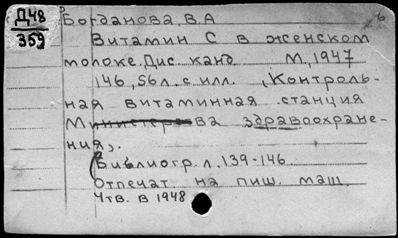 Д48
359
Богданова, В.А
Витамин С в женском
молоке. Дис. канд. М, 1947
146, 56л. с илл. (Контроль-
ная витаминная станция
Министерства здравоохране-
ния).
(Библиогр. л. 139-146.
Отпечат на пиш. маш.
Утв. в 1948